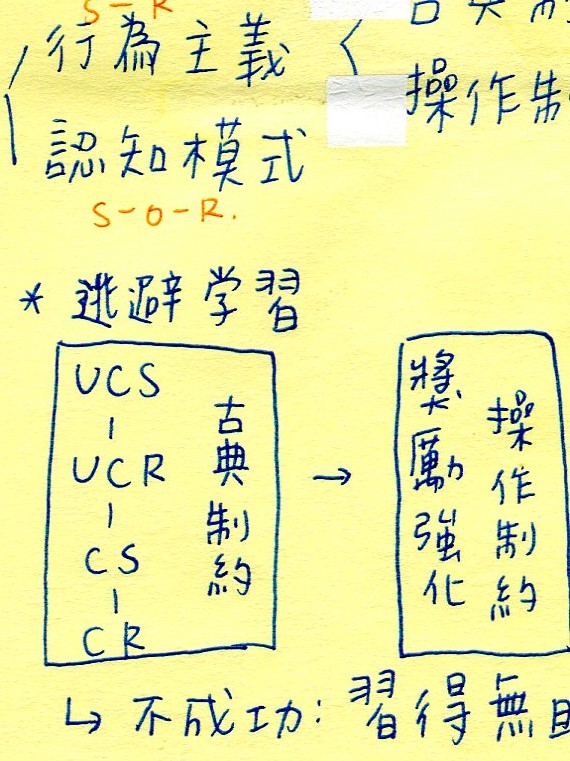 S-R
行為主義
操作制
認知模式
S-O-R.
* 逃避学習
UCS
UCR
CS
CR
古典制約
→
獎勵強化
操作制約
↳ 不成功: 習得無